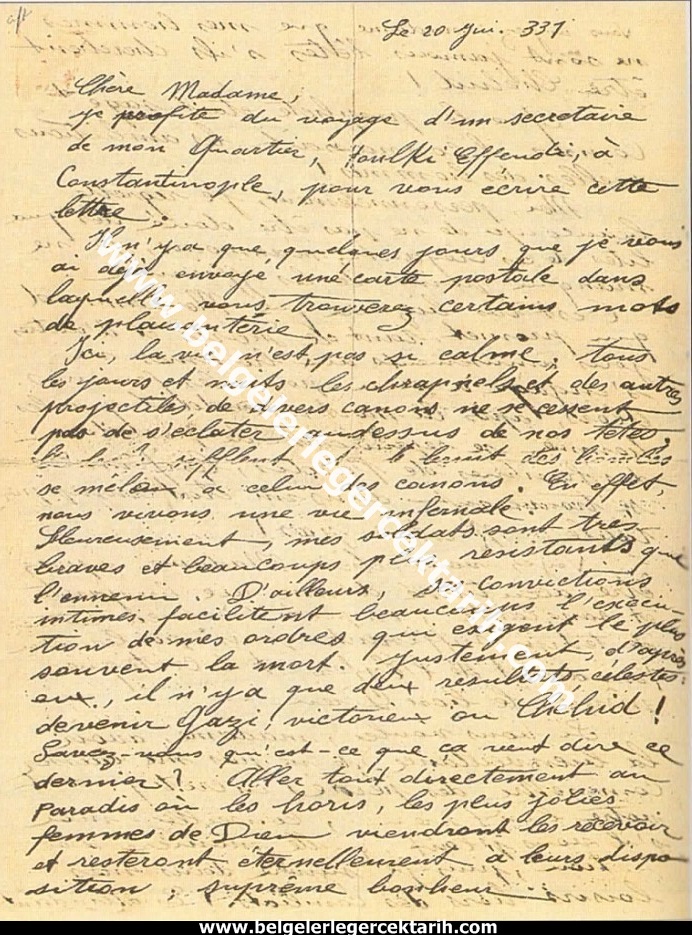 Le 20 Jui. 331
Chère Madame,
je profite du voyage d'un secretaire
de mon Quartier, Houlki Effendi, à
Constantinople, pour vous ecrire cette
lettre.
Il n'y a que quelques jours que je vous
ai déjà envoyé une carte postale dans
laquelle vous trouverez certains mots
de plaisantérie
Ici, la vie n'est pas si calme. Tous
les jours et nuits les chrapnels et des autres
projectiles de divers canons ne se cessent
pas de s'eclater audessus de nos têtes,
sifflent et le bruit des bombes
se mêlent à celui des canons. En effet,
nous vivons une vie infernale.
Heureusement, mes soldats sont très
braves et beaucoups plus resistants que
l'ennemi. D'ailleurs, convictions
intimes facilitent beaucoups l'execu-
tion de mes ordres qui exigent le plus
souvent la mort. Justement, d'après
eux, il n'y a que deux resultats célestes:
devenir Gazi, victorieux ou Chehid!
Savez-vous qu'est-ce que ça veut dire ce
dernier? Aller tout directement au
Paradis où les horis, les plus jolies
femmes de Dieu viendront les recevoir
et resteront éternellement à leurs dispo
sition, suprême bonheur
www.belgelerlegercektarih.com
www.belgelerlegercektarih.com